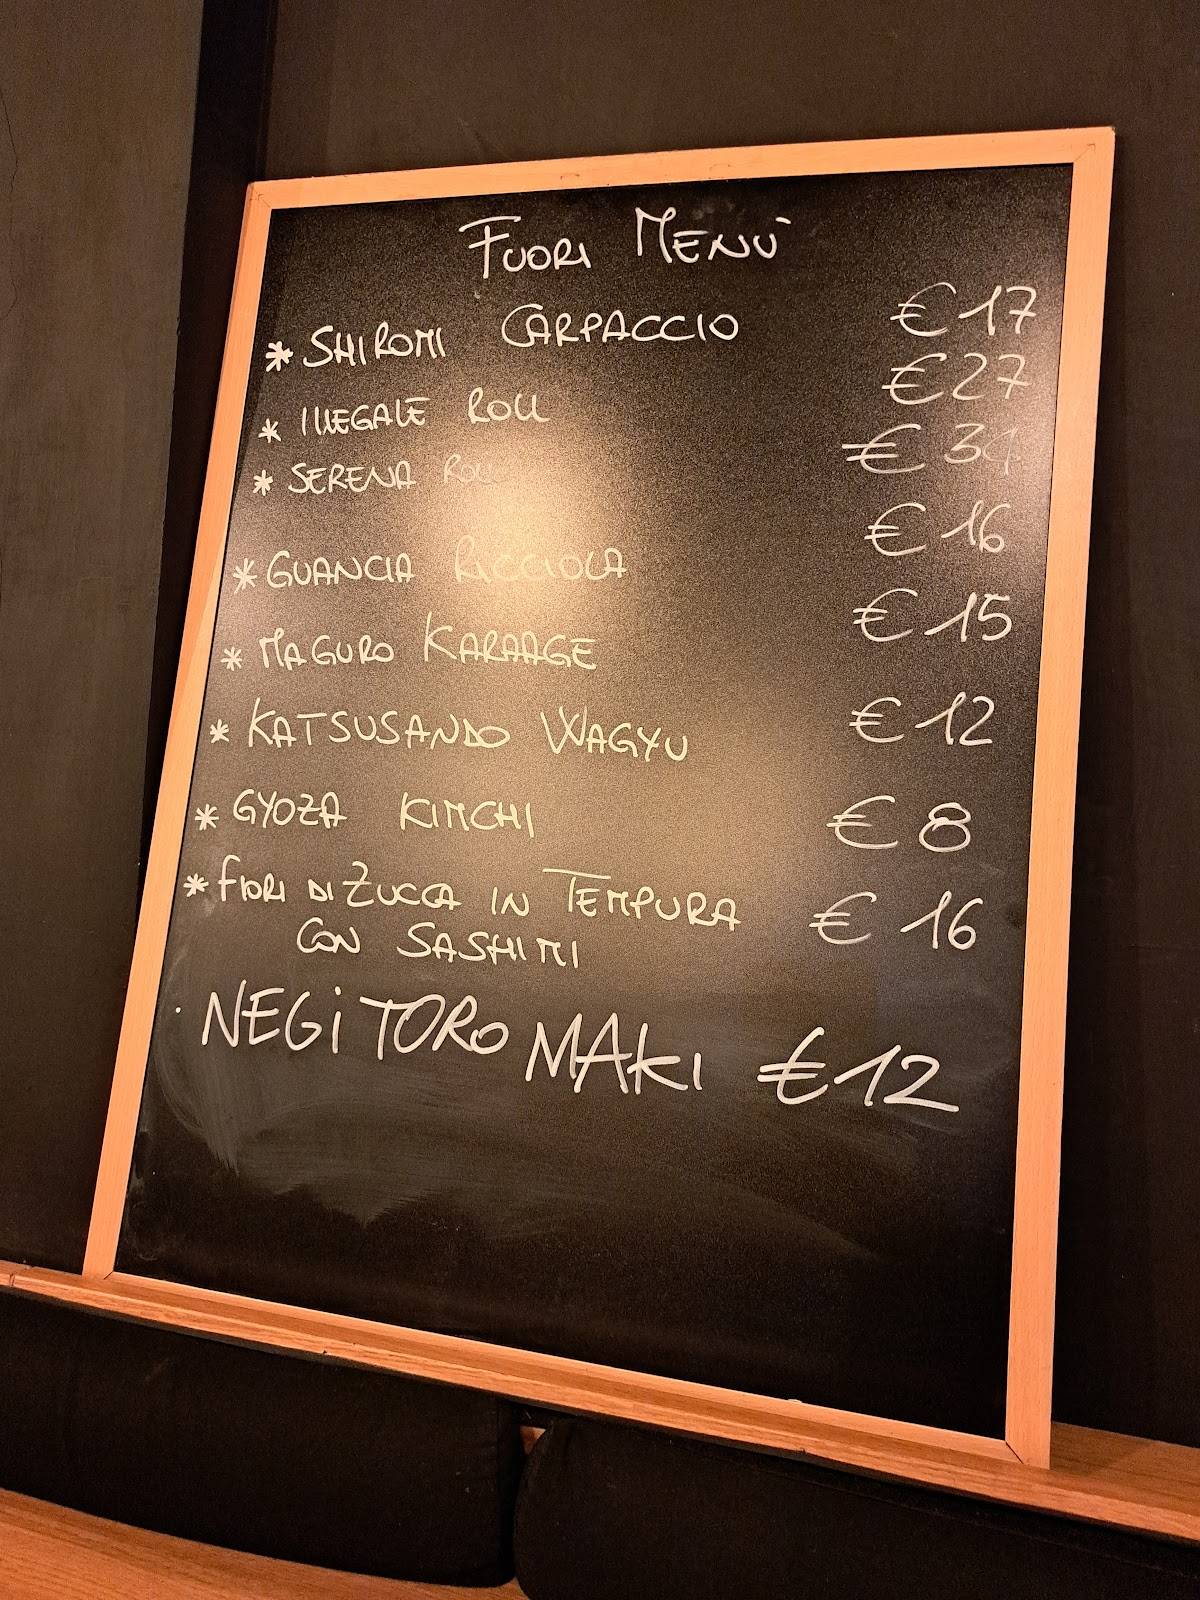 FUORI MENÙ
* SHIROMI CARPACCIO €17
* ILLEGALE ROLL €27
* SERENA ROLL €34
* GUANCIA RICCIOLA €16
* MAGURO KARAAGE €15
* KATSUSANDO WAGYU €12
* GYOZA KIMCHI €8
* FIORI DI ZUCCA IN TEMPURA €16
CON SASHIMI
· NEGITORO MAKI €12